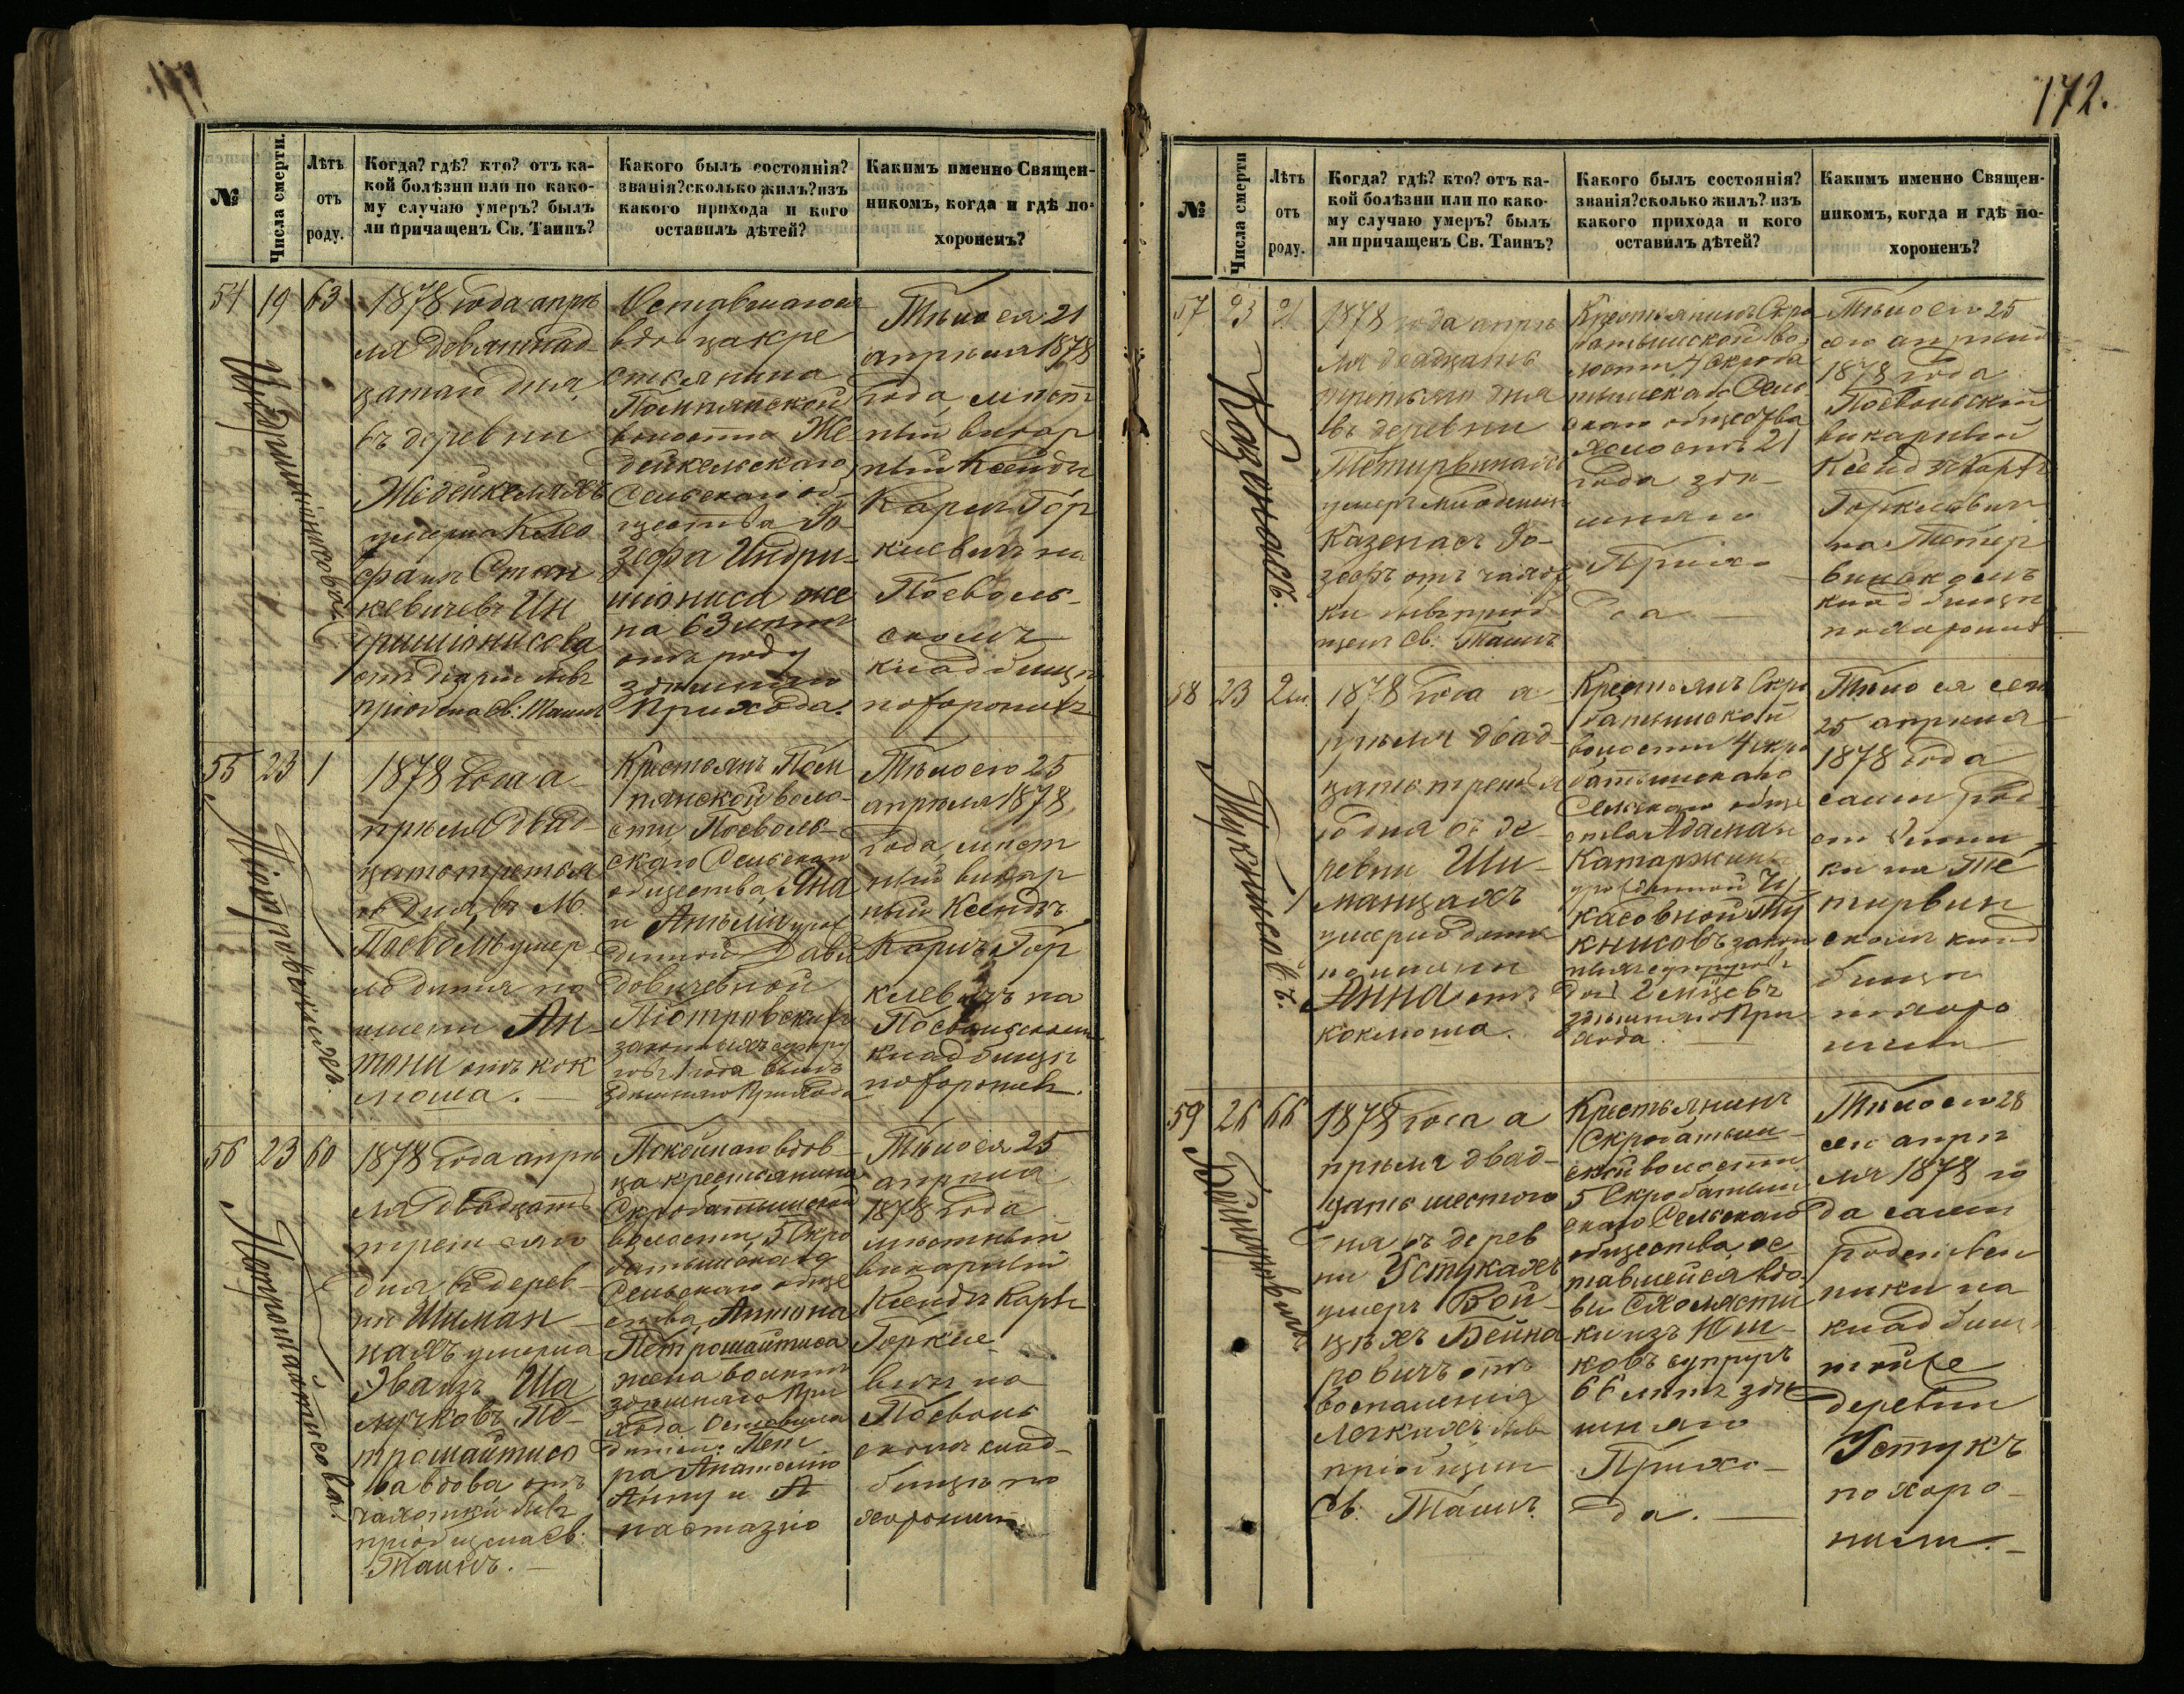 172.
№
Числа смерти.
Лѣтъ
отъ
роду.
Когда? гдѣ? кто? отъ ка-
кой болѣзни или по како-
му случаю умеръ? былъ
ли причащенъ Св. Таинъ?
Какого былъ состоянія?
званія? сколько жилъ? изъ
какого прихода и кого
оставилъ дѣтей?
Какимъ именно Священ-
никомъ, когда и гдѣ по-
хороненъ?
54
19
63
1878 года апрѣ
ля девятнад
цатаго дня,
въ деревни
Жидейкеляхъ
умерла
Стан
кевичевъ Ин
дришіонисова
Св: Таинъ
Оставшагося
вдовца кре
стьянина
Помпянской
волости Же-
дейкельскаго
Сельскаго об-
щества Іо-
зефа Индри-
шіониса же
на 63 лѣтъ
отъ роду
здѣшняго
прихода.
Тѣло ея 21
апрѣля 1878
года, мѣст
ный викар
ный Ксендзъ
Карлъ Гор
килевичъ на
Поеволь-
скомъ
кладбищѣ
похоронилъ
55
23
1
Піотровскихъ
1878 года а-
прѣля двад-
цатотретья
го дня, въ М.
Поеволѣ умер
ло дитя по
имени Ан-
тони отъ кок
люша.
Крестьянъ Пом
пянской воло-
сти, Поеволь-
скаго Сельскаго
общества, Яна
и Анеліи урож
денной Дави
довичевной
Піотровскихъ
законныхъ супру
говъ 1 года сынъ
здѣшняго прихода
Тѣло его 25
апрѣля 1878
года, мѣст
ный викар
ный Ксендзъ
Карлъ Гор
килевичъ на
Поевольскомъ
кладбищѣ
похоронилъ.
56
23
60
Петрошайтисова.
1878 года апрѣ
ля двадцать
третьяго
дня въ дерев-
ни Шиман-
цахъ умерла
Эва изъ Ша
лучковъ Пе-
трошайтисо
ва вдова отъ
чахотки бывъ
пріобщена Св:
Таинъ.
Покойнаго вдов-
ца крестьянина
Скробатишской
волости, 5 Скро
батишскаго
Сельскаго обще
ства, Антона
Петрошайтиса
жена
здѣшняго при
хода. Оставила
дѣтей: Пет
ра
Анну и А
настазію
Тѣло ея 25
апрѣля
1878 года
мѣстный
викарный
Ксендзъ Карлъ
Горкиле-
вичъ на
Поеволь
скомъ клад-
бищѣ по
хоронилъ
№
Числа смерти
Лѣтъ
отъ
роду.
Когда? гдѣ? кто? отъ ка-
кой болѣзни или по како-
му случаю умеръ? былъ
ли причащенъ Св. Таинъ?
Какого былъ состоянія?
званія? сколько жилъ? изъ
какого прихода и кого
оставилъ дѣтей?
Какимъ именно Священ-
никомъ, когда и гдѣ по-
хороненъ?
57
23
21
Казенасъ.
1878 года апрѣ
ля двадцать
третьяго дня
въ деревни
Тетирвинахъ
умеръ
Казенасъ Іо-
зефъ отъ чахот
ки бывъ пріоб
щенъ Св: Таинъ
Крестьянинъ Скро
батишской во-
лости, 4 Скроба
тишскаго Сель
скаго общества
холостъ 21
года здѣ-
шняго
Прихо-
да.
Тѣло его 25
сего апрѣля
1878 года
Поевольскій
викарный
Ксендзъ Карлъ
Горкилевичъ
на Тетир
винскомъ
кладбищѣ
похоронилъ
58
23
2 м.
Тукнисовъ.
1878 года а-
прѣля двад-
цать третья
го дня въ де-
ревни Ши-
манцахъ
умерло дитя
по имени
Анна отъ
коклюша.
Крестьянъ Скро
батишской
волости 4 Скро
батишскаго
Сельскаго обще
ства Адама и
Катаржины
урожденной
касовной Ту
книсовъ закон
ныхъ супруговъ
дочь 2 мѣсцевъ
здѣшняго при
хода.
Тѣло ея сего
25 апрѣля
1878 года
сами род-
ственни
ки на Те
тирвин
скомъ клад
бищѣ
похоро
нили
59
26
66
Бейнаровичъ
1878 года а
прѣля двад-
цать шестого
дня въ дерев
ни Устукахъ
умеръ Вой-
цѣхъ Бейна
ровичъ отъ
воспаленія
легкихъ бывъ
пріобщенъ
Св: Таинъ.
Крестьянинъ
Скробатиш-
ской волости
5 Скробатиш
скаго Сельскаго
общества, ос
тавшейся вдо-
вы Схолясти
ки изъ Юш-
ковъ супругъ
66 лѣтъ здѣ
шняго
Прихо-
да.
Тѣло его 28
сего апрѣ
ля 1878 го
да сами
родствен
ники на
кладбищѣ
тойже
деревни
Устукъ
похоро-
нили.